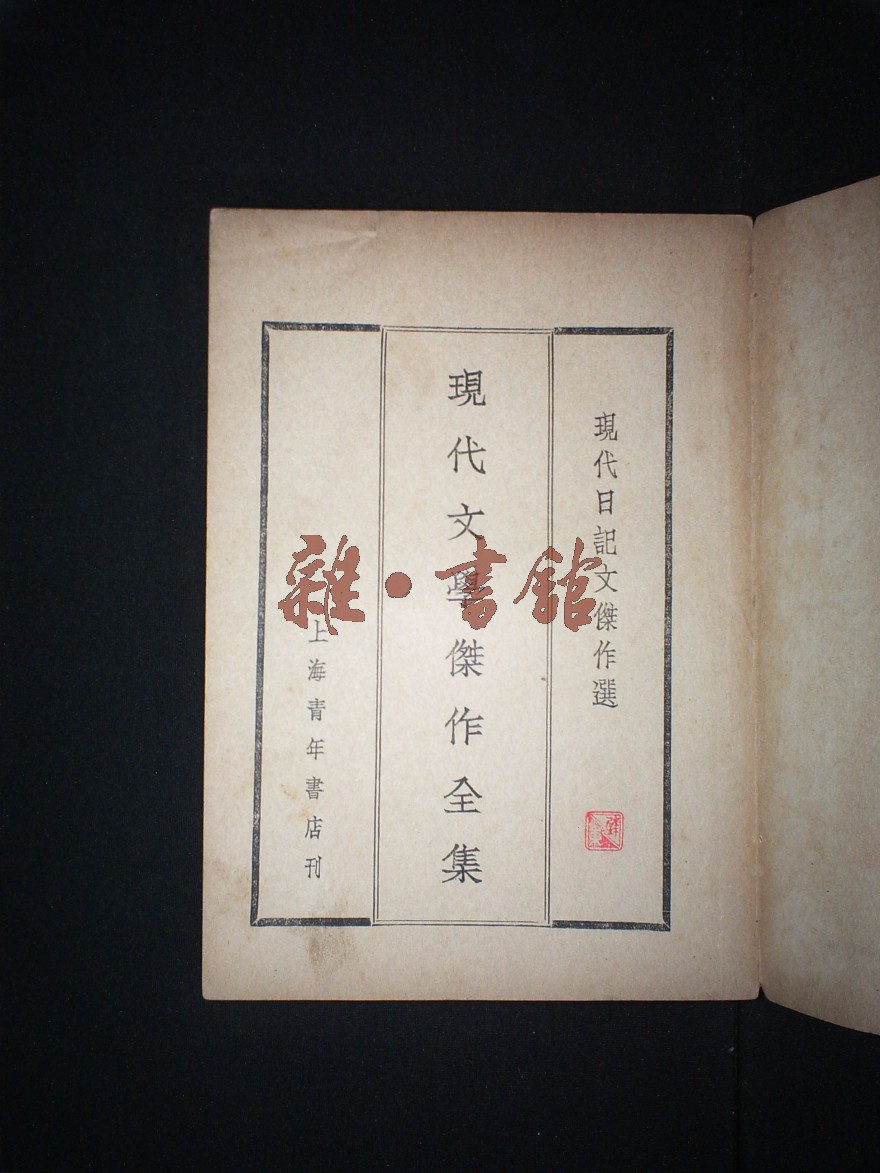 現代日記文傑作選
現代文學傑作全集
上海青年書店刊
雜·書館